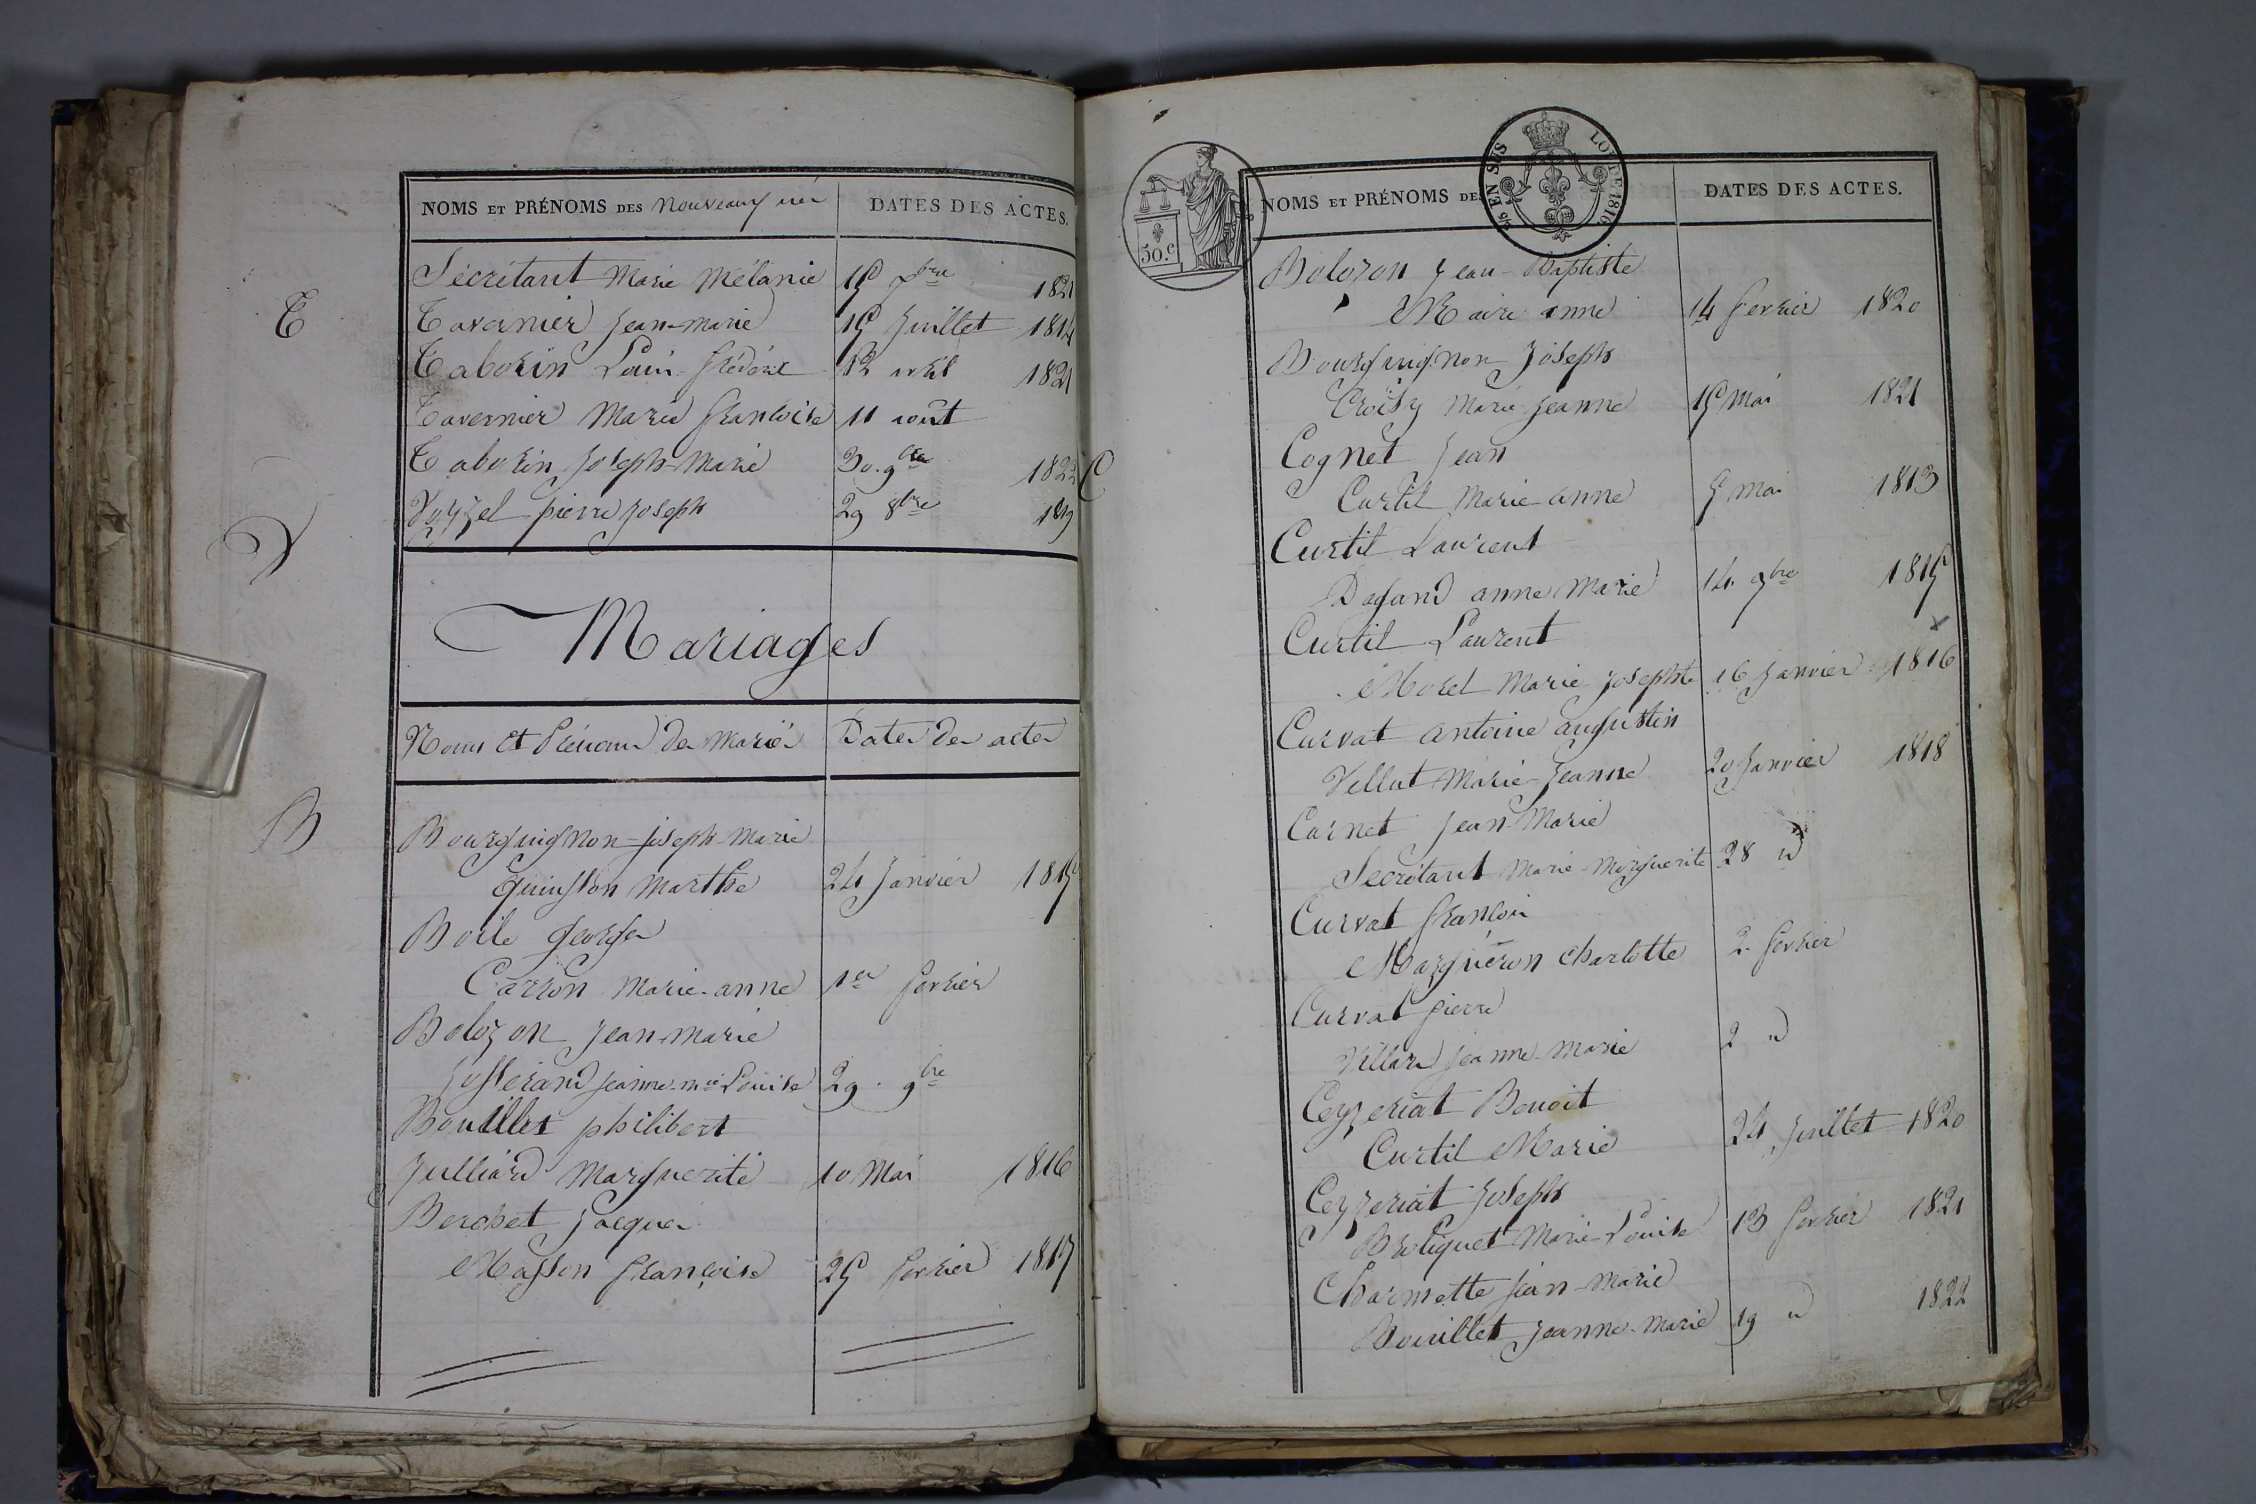 NOMS ET PRÉNOMS DES nouveaux nés DATES DES ACTES.
Sécrétant Marie Mélanie 15 1821
T Tavernier Jean-Marie 15 Juillet 1814
Taborin Louis-frédéric 12 avril 1821
Tavernier Marie françoise 11 aout
Taborin Joseph-Marie 30. 9bre 1822
V pierre Joseph 29 8bre 1819
Mariages
Noms et Prénoms des Mariés Dates des actes
B Bourguignon Joseph-Marie
Guinston Marthe 24 Janvier 1815
Boile George
Carron Marie-anne 1er fevrier
Bolozon Jean-Marie
Josserand Jeanne-mie Louise 29. 9bre
Bouillet philibert
Julliard Marguerite 10 Mai 1816
Berchet Jacques
Masson françoise 25 fevrier 1817
NOMS ET PRÉNOMS DES DATES DES ACTES.
50.c
EN SUS
LOI DE 1816
Bolozon Jean-Baptiste
Maire anne 14 fevrier 1820
Bourguignon Joseph
Croisy Marie Jeanne 15 Mai 1821
C Cognet Jean
Curtil Marie-anne 5 Mai 1813
Curtil Laurent
Dagand anne Marie 14. 9bre 1815
Curtil Laurent
Morel Marie-Josephte 16 Janvier 1816
Curvat antoine augustin
Vellut Marie-Jeanne 20 Janvier 1818
Carnet Jean-Marie
Secrétant Marie-Marguerite 28 id
Curvat françois
Margueron Charlotte 2 fevrier
Curvat pierre
Villard Jeanne-Marie 2 id
Ceyzeriat Benoit
Curtil Marie 24 Juillet 1820
Ceyzeriat Joseph
Broliquet Marie-Louise 13 fevrier 1821
Charmette Jean-Marie
Bouillet Jeanne-Marie 19 id 1822